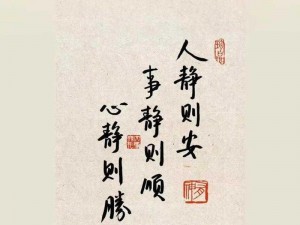 人静则安
事静则順
心静则勝